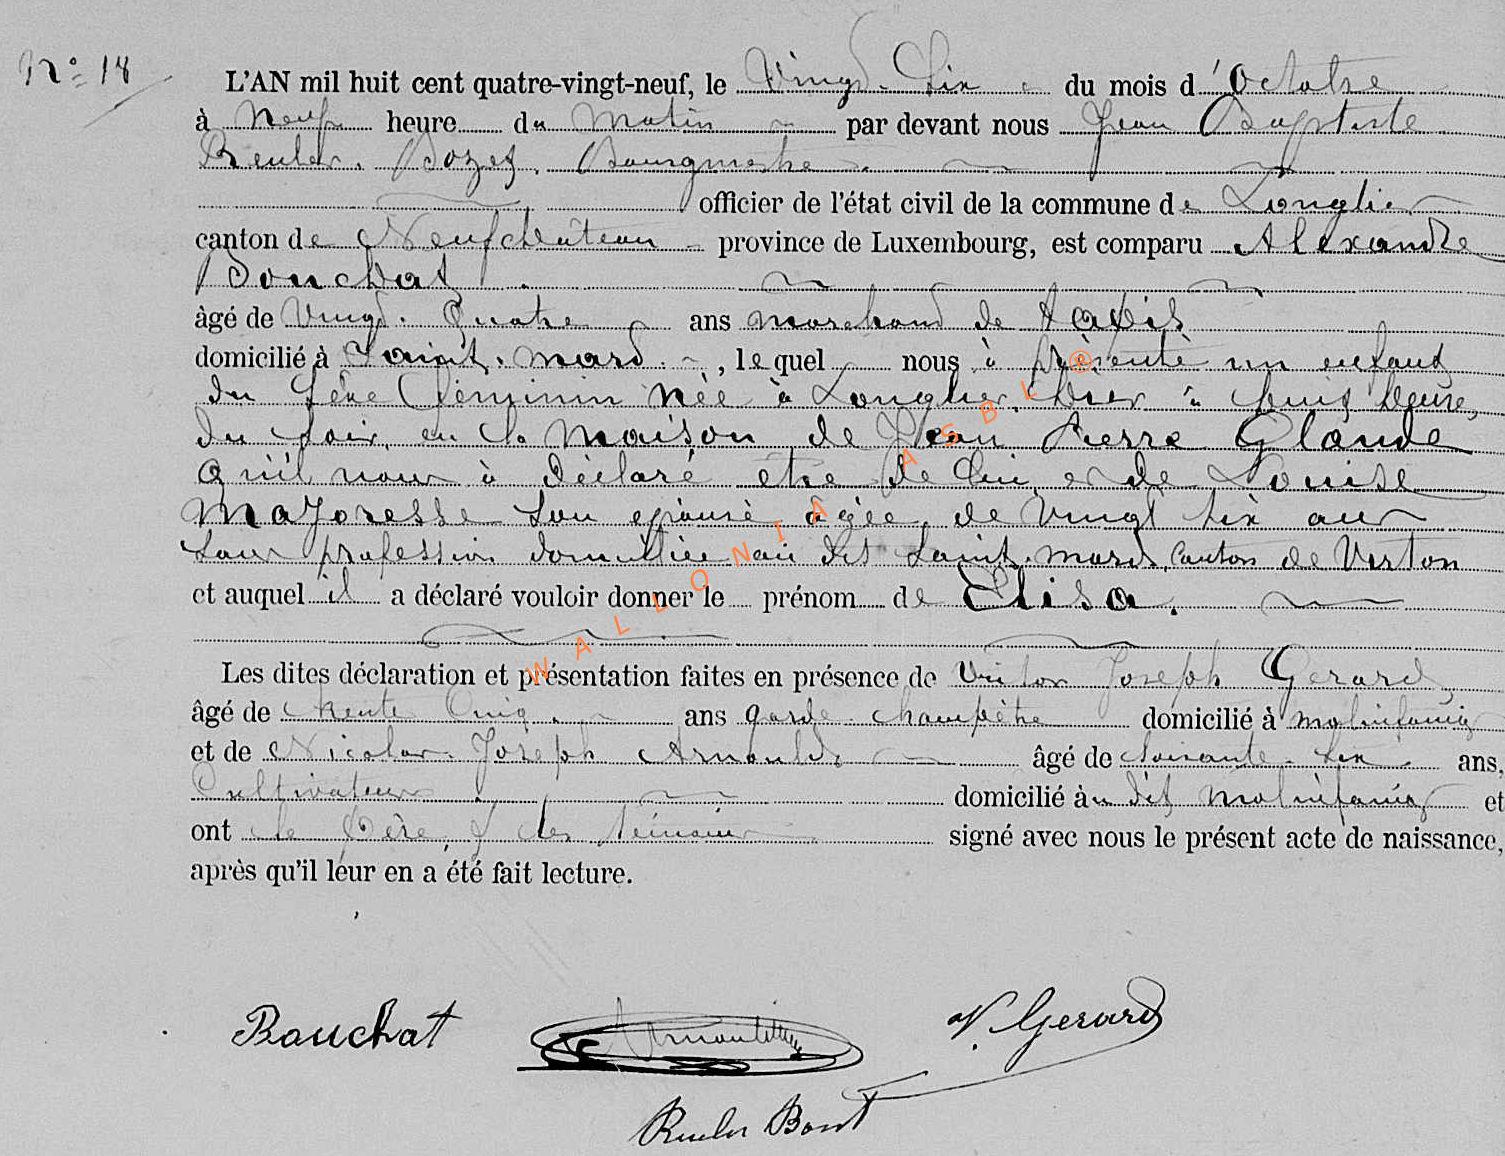 N° 18
L'AN mil huit cent quatre-vingt-neuf, le Vingt Six du mois d'Octobre
à Neuf heure du Matin par devant nous Jean Baptiste
Reuler Bourgmestre
officier de l'état civil de la commune de Longlier
canton de Neufchâteau province de Luxembourg, est comparu Alexandre
Bouchat
âgé de Vingt Quatre ans marchand de tapis
domicilié à Saint mard, lequel nous à présenté un enfant
du Séxe Féminin Née à Longlier hier à huit heure,
du Soir en la Maison de Jean Pierre Glaude
qu'il nous à déclaré etre de lui et de Louise
Majoresse Son epouse âgée de Vingt Six ans
sans profession domiciliée au dit Saint mard canton de Virton
et auquel il a déclaré vouloir donner le prénom de Elisa.
Les dites déclaration et présentation faites en présence de Joseph Gerard,
âgé de trente Cinq ans garde champêtre domicilié à molinfaing
et de Nicolas Joseph Arnould âgé de Soixante Six ans,
Cultivateur domicilié au dit Molinfaing et
ont le Père & les témoins signé avec nous le présent acte de naissance,
après qu'il leur en a été fait lecture.
Bouchat Arnould V. Gerard
Reuler
WALLONIA ASBL ®